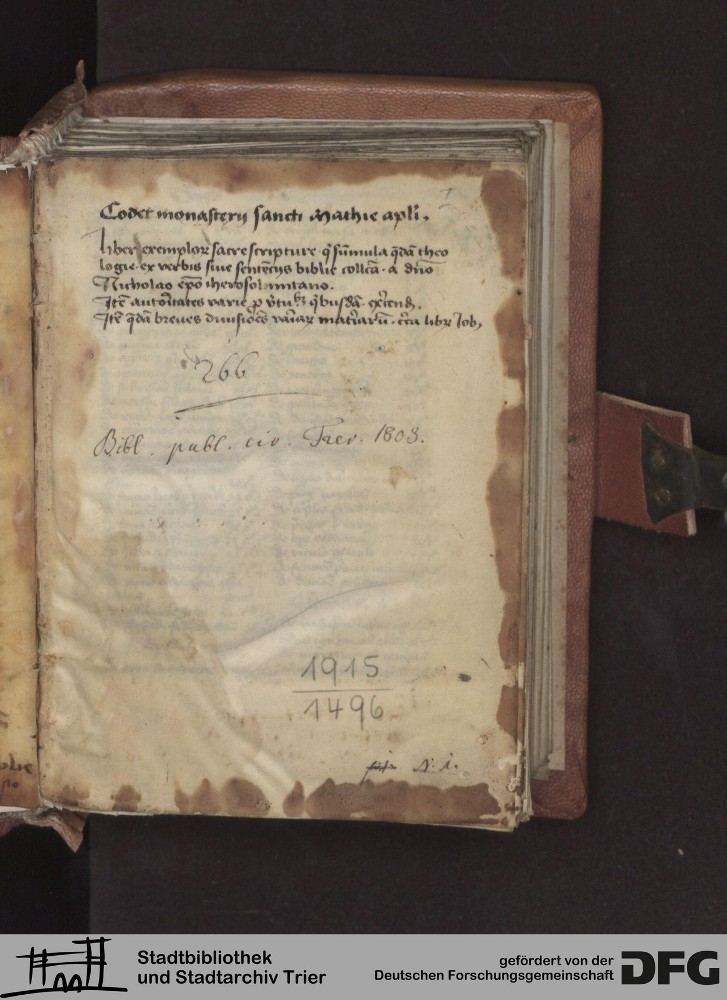 1
Codex monasterij sancti Mathie apli.
Liber exemplor sacre scripture · q̄ sūmula q̄dā theo
logie ex verbis siue sentencijs biblie collcā · a dn̄o
Nicholao ep̄o iherosolimitano.
Itē autoritates varie p
Itē q̄dā breues diuisiōēs materiarū · circa libr Iob,
266
Bibl. publ. civ. Trev. 1803.
1915
1496
N. 1.
Stadtbibliothek
und Stadtarchiv Trier
gefördert von der
Deutschen Forschungsgemeinschaft
DFG